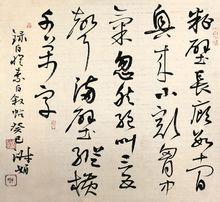 粉壁長廊數十間
興來小豁胸中
氣忽然絕叫三五
聲滿壁縱橫
千萬字
録自懷素自敘帖癸巳